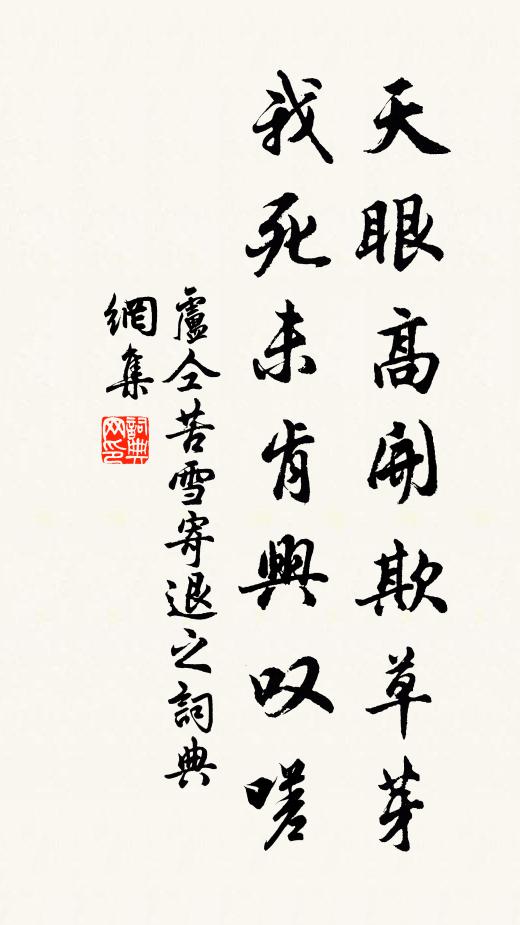 天眼高開欺草芽
我死未肯興叹嗟
盧仝苦雪寄退之詞典
網集
詞典
网印